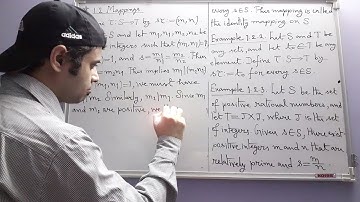 1.2 Mappings
T: S→T by sτ=(m,n)
S and let m₁, n₁, m₂, n₂ be
integers such that (m₁, n₁)=1
=1, and s=m₁/n₁=m₂/n₂. Then
This implies m₁|
(m₁, n₁)=1, we must have
Similarly, m₂|m₁. Since m₁
and m₂ are positive, we
every s∈S. This mapping is called
the identity mapping on S
Example 1.2.2. Let S and T be
any sets, and let t₀∈T be any
element. Define τ: S→T by
sτ:=t₀ for every s∈S.
Example 1.2.3. Let S be the set
of positive rational numbers, and
let T=J×J, where J is the set
of integers. Given s∈S, there exist
positive integers m and n that are
relatively prime and s=m/n.
adidas